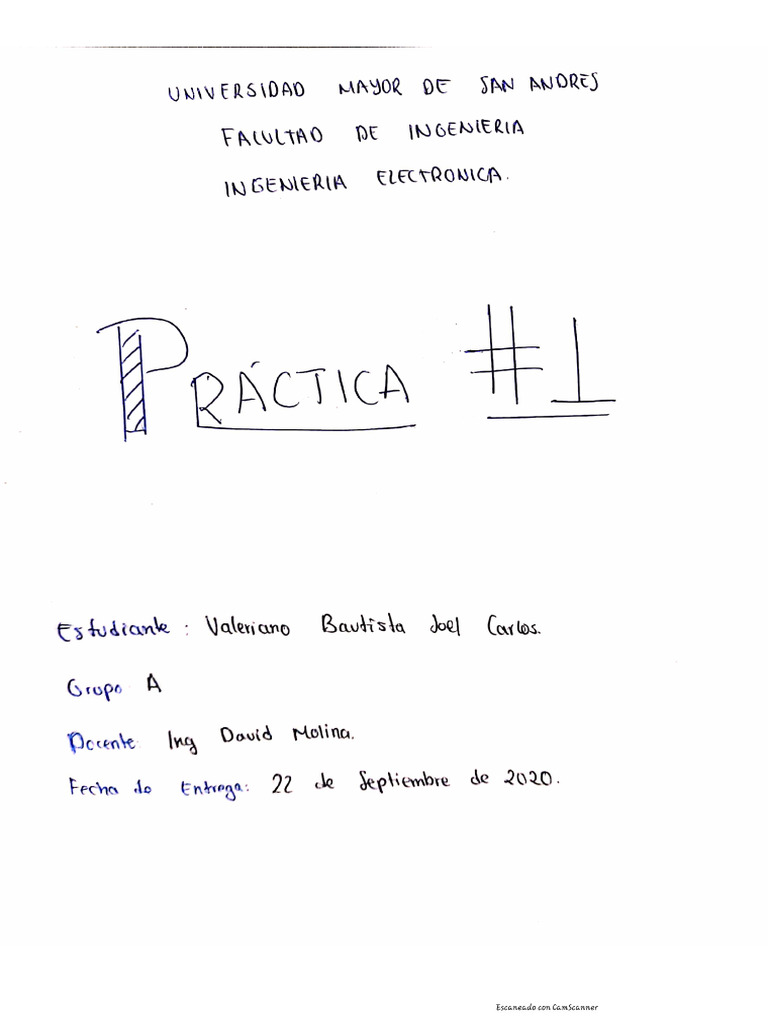 UNIVERSIDAD MAYOR DE SAN ANDRES
FACULTAD DE INGENIERIA
INGENIERIA ELECTRONICA.
PRÁCTICA #1
Estudiante: Valeriano Bautista Joel Carlos.
Grupo A
Docente: Ing David Molina.
Fecha de Entrega: 22 de Septiembre de 2020.
Escaneado con CamScanner